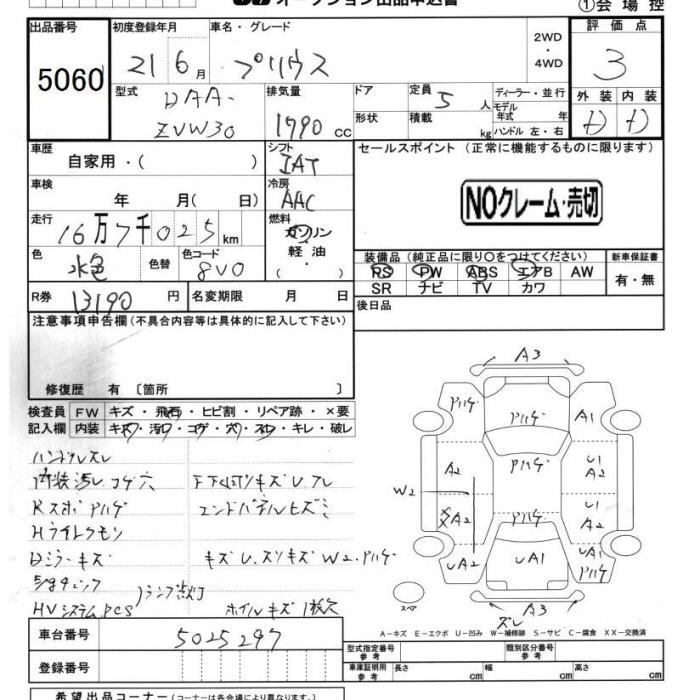 オークション出品申込書
①会場控
出品番号
初度登録年月
車名・グレード
2WD
・
4WD
評価点
5060
21 6月
プリウス
3
型式
排気量
ドア
定員
ディーラー・並行
外装 内装
DAA-
ZVW30
1790 cc
形状
5人
積載
kg
モデル
年式 年
ハンドル 左・右
D D
車歴
自家用・( )
シフト
IAT
セールスポイント(正常に機能するものに限ります)
車検
年 月( 日)
冷房
AAC
NOクレーム・売切
走行
16万7千025km
燃料
ガソリン
軽油・
( )
色
水色
色替
色コード
8V0
装備品(純正品に限り○をつけてください)
新車保証書
PS PW ABS エアB AW
SR ナビ TV カワ
有・無
R券
13190円
名変期限 月 日
後日品
注意事項申告欄(不具合内容等は具体的に記入して下さい)
修復歴 有〔箇所 〕
検査員
記入欄
FW キズ・飛石・ヒビ割・リペア跡・×要
内装 キズ・汚レ・コゲ・穴・スレ・キレ・破レ
ハンドルスレ
内装汚レコゲ穴
F下回りキズUスレ
Rスポ Pハゲ
エンドパネルヒズミ
Hライトクモリ
Dミラーキズ
キズU.スリキズ W2.Pハゲ
HVシステムPCS
ランプ点灯
ホイルキズ1枚欠
A3
Pハゲ
Pハゲ
A1
A2
Pハゲ
U1
A2
W2
A2
U1
A2
Pハゲ
UA2
UA1
UA1
Pハゲ
スペア
A3
ズレ
A-キズ E-エクボ U-凹み W-補修跡 S-サビ C-腐食 XX-交換済
車台番号
5025297
型式指定番号
参考
類別区分番号
参考
登録番号
車庫証明用
参考
長さ cm
幅 cm
高さ cm
希望出品コーナー(コーナー名は各会場により異なります)